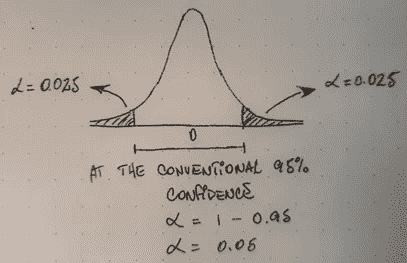 α = 0.025
α = 0.025
0
AT THE CONVENTIONAL 95%
CONFIDENCE
α = 1 - 0.95
α = 0.05